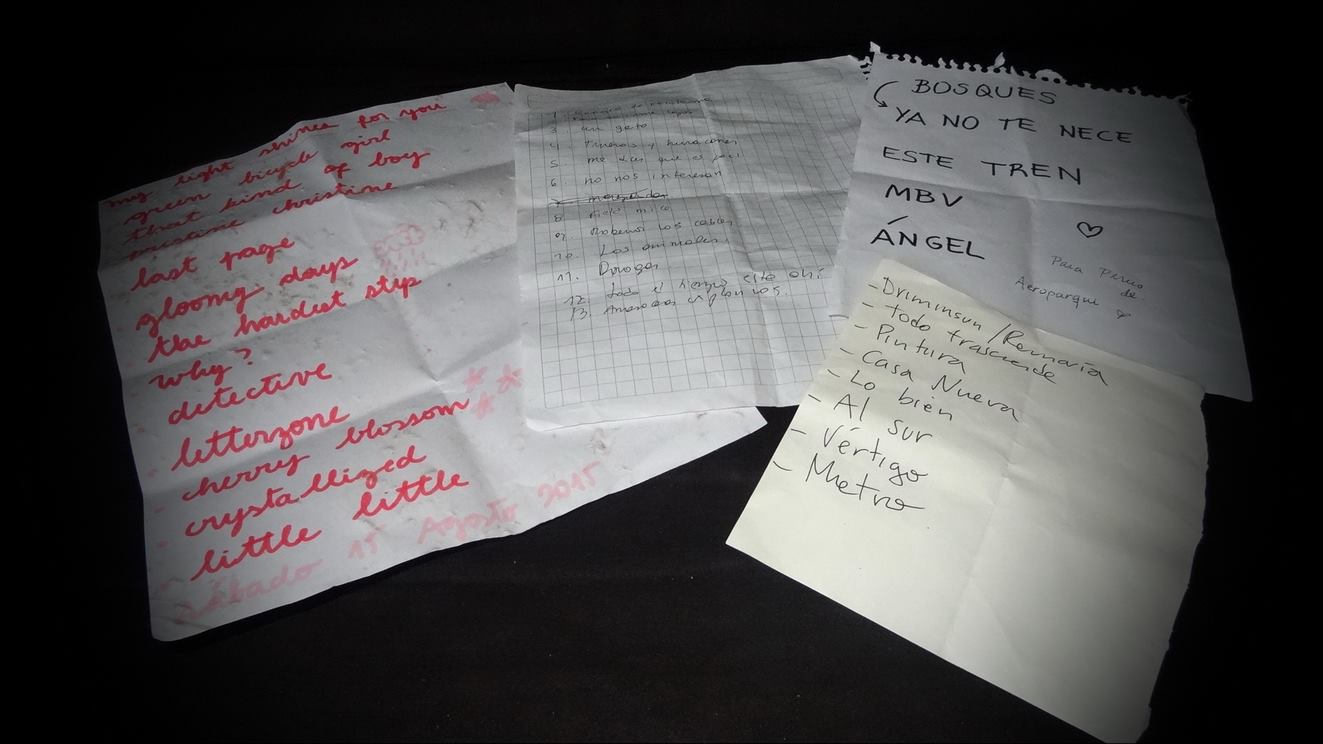 my light shines for you
green bicycle girl
that kind of boy
pristine christine
last page
gloomy days
the hardest step
why?
detective
letterzone
cherry blossom
crystallized
little little
sábado 15 Agosto 2015
1.
3 un gato
4 Tiburones y huracanes
5. me
6. no nos interesan
7. 
8
9. Robemos los cables
10. Los animales
11. Drogas
12. todo el tiempo esta ahi
13. Amorosas
BOSQUES
YA NO TE NECE
ESTE TREN
MBV
ÁNGEL
Para Perros
de
Aeroparque
- Driminsun / Remaría
- todo trasciende
- Pintura
- Casa Nueva
- Lo bien
- Al sur
- Vértigo
- Metro